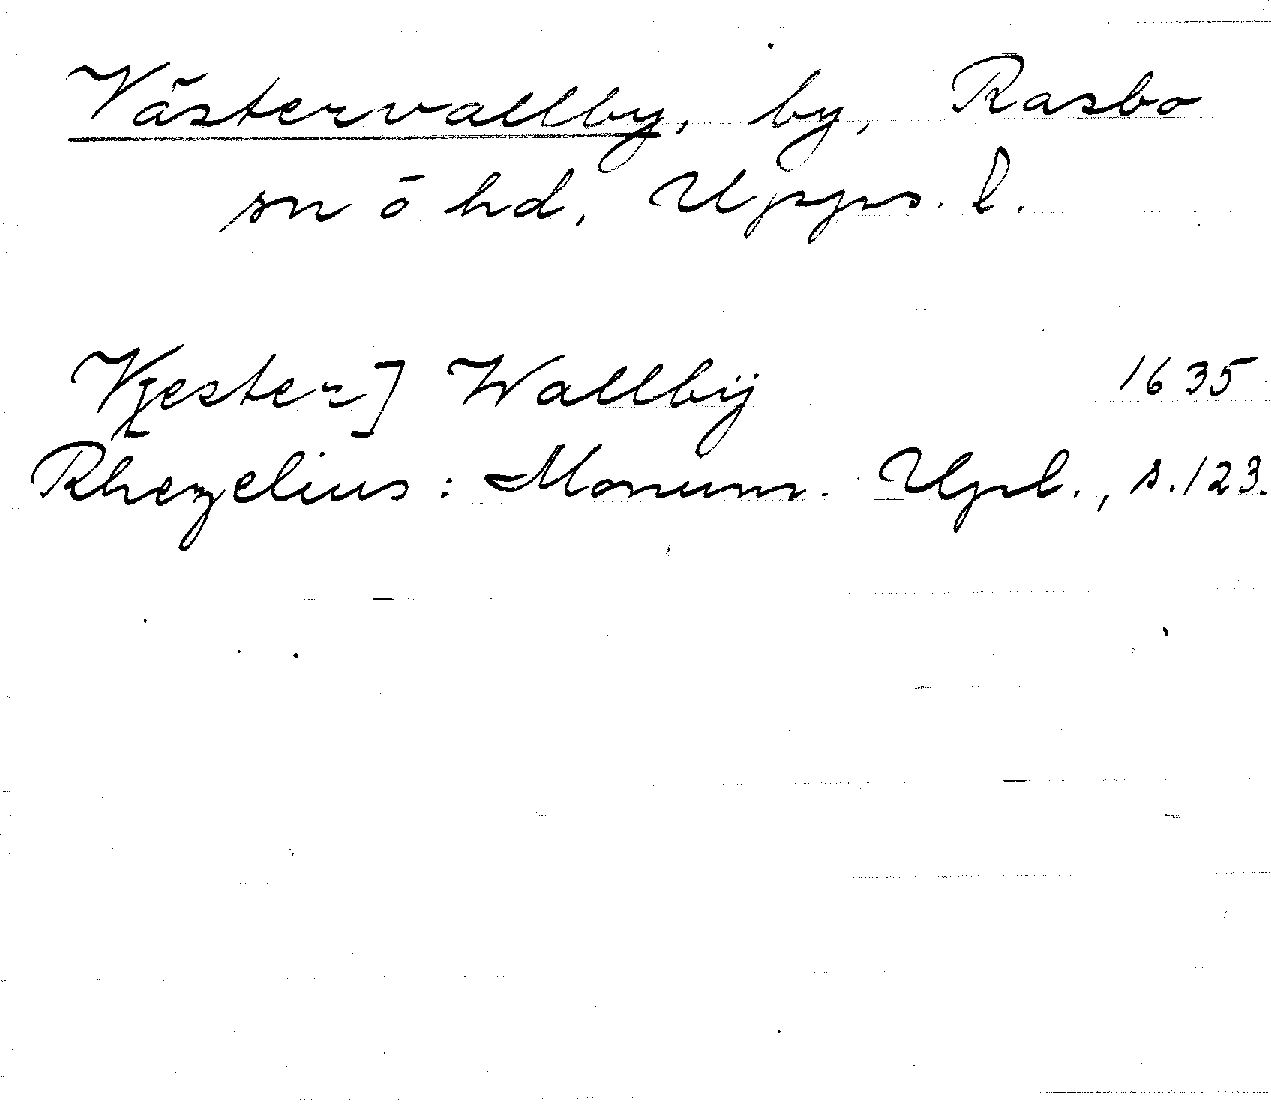 Västervallby, by, Rasbo
sn o hd, Upps. l.
V[ester] Wallbÿ 1635
Rhezelius: Monum. Upl., s. 123.